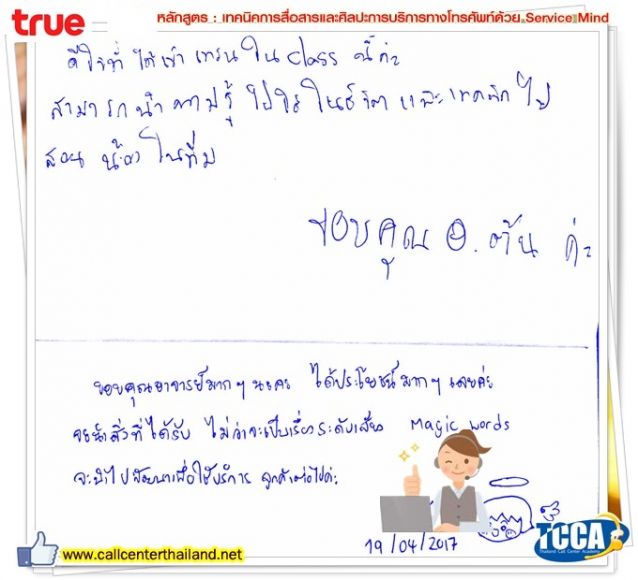 true
หลักสูตร : เทคนิคการสื่อสารและศิลปะการบริการทางโทรศัพท์ด้วย Service Mind
ดีใจที่ ได้เข้า เทรน ใน class นี้ค่ะ
สามารถนำความรู้ ไปใช้ในชีวิต และเทคนิค ไป
สอน น้อง ในทีม
ขอบคุณ อ. ต้น ค่ะ
ขอบคุณอาจารย์มาก ๆ นะคะ ได้ประโยชน์มาก ๆ เลยค่ะ
จะนำสิ่งที่ได้รับ ไม่ว่าจะเป็นเรื่องระดับเสียง Magic words
จะนำไปพัฒนาเพื่อใช้บริการ ลูกค้าต่อไปค่ะ
19/04/2017
www.callcenterthailand.net
TCCA
Thailand Call Center Academy